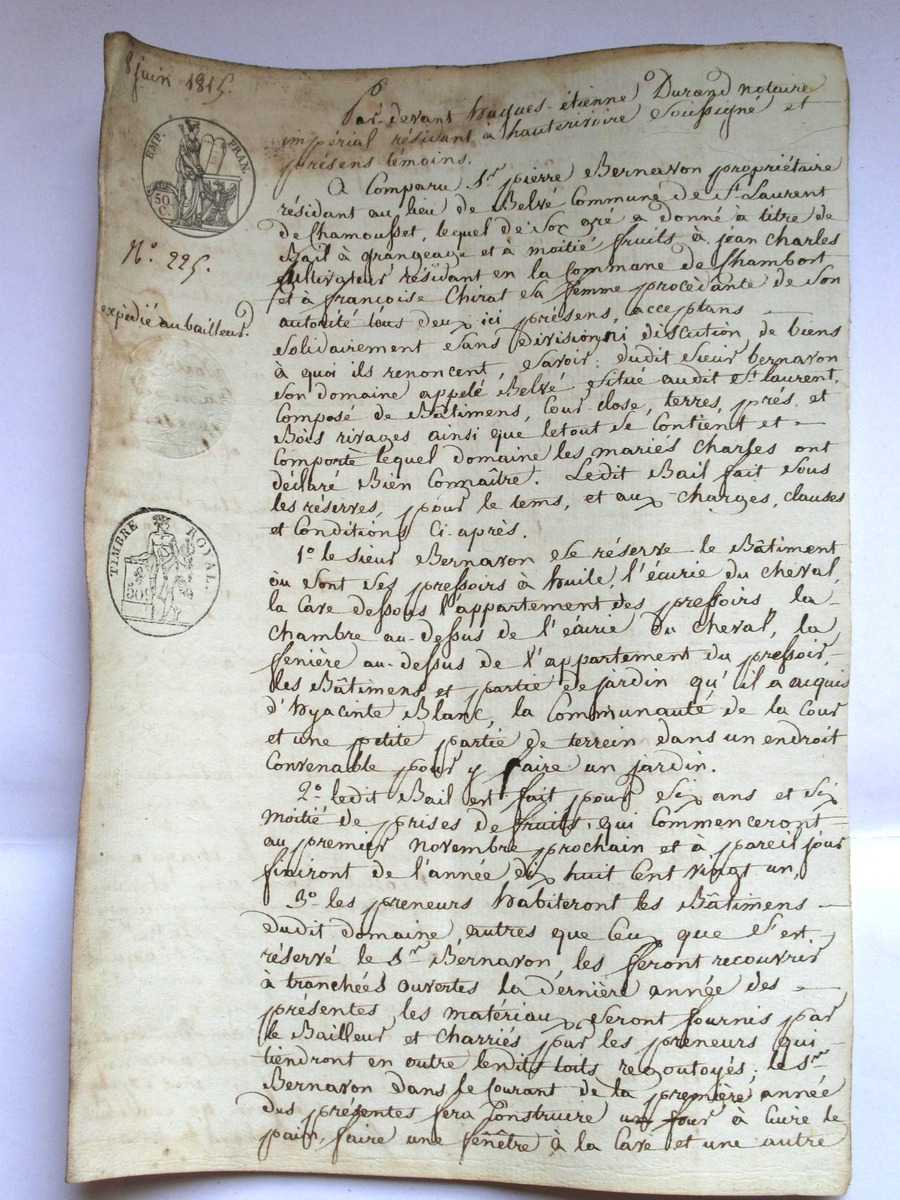 8 juin 1815.
Par-devant Jaques-étienne Durand notaire
impérial résidant a hauterivoire Soussigné et
présens témoins.
EMP. FRAN.
50 C.
A Comparu Sr pierre Bernavon propriétaire
résidant au lieu de Belvé Commune de St Laurent
de Chamousset, lequel de Son gré a donné a titre de
Bail à grangeage et à moitié fruits à jean Charles
Cultivateur résidant en la Commune de Chambost
et à françoise Chirat Sa femme procédante de Son
autorité tous deux ici présens, acceptans
Solidairement Sans division ni discution de biens
à quoi ils renoncent, Savoir: dudit Sieur bernavon
Son domaine appelé Belvé Situé audit St Laurent,
Composé de Bâtimens, Cour close, terres, prés et
Bois rivages ainsi que letout Se Contient et
Comporte lequel domaine les mariés Charles ont
déclaré Bien Connaître. Ledit Bail fait Sous
les réserves, pour le tems, et aux charges, clauses
et Conditions Ci-après.
No. 225.
expédié au bailleur.
TIMBRE ROYAL.
50
1o le Sieur Bernavon Se réserve le Bâtiment
òu Sont Ses pressoirs à huile, l'écurie du Cheval,
la Cave dessous l'appartement des pressoirs la
Chambre au-dessus de l'écurie du Cheval, la
fenière au-dessus de l'appartement du pressoir,
les Bâtimens et partie de jardin qu'il a acquis
d'hyacinte Blanc, la Communauté de la Cour
et une petite partie de terrein dans un endroit
Convenable pour y faire un jardin.
2o ledit Bail est fait pour Six ans et Six
moitié de prises de fruits, qui Commenceront
au premier novembre prochain et à pareil jour
finiront de l'année dix huit Cent vingt un,
3o les preneurs habiteront les Bâtimens
dudit domaine, autres que Ceux que S'est
réservé le Sr Bernavon, les feront recouvrir
à tranchées ouvertes la dernière année des
présentes, les matériaux Seront fournis par
le Bailleur et Charriés par les preneurs qui
tiendront en outre lesdits toits regoutoyés; le Sr
Bernavon dans le Courant de la première année
des présentes fera Construire un four à Cuire le
pain, faire une fenêtre à la Cave et une autre